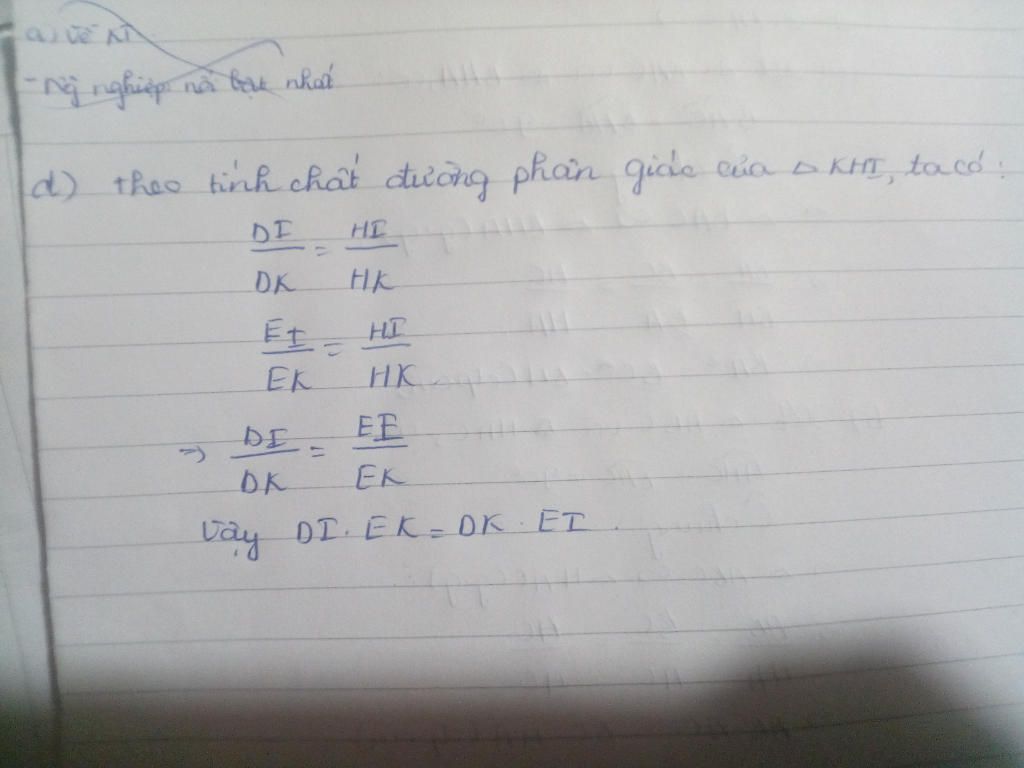 a) Vẽ KI
- Ng nghiệp nổi bật nhất
d) theo tính chất đường phân giác của △ KHI, ta có :
DI/DK = HI/HK
EI/EK = HI/HK
=> DI/DK = EI/EK
Vậy DI . EK = DK . EI .